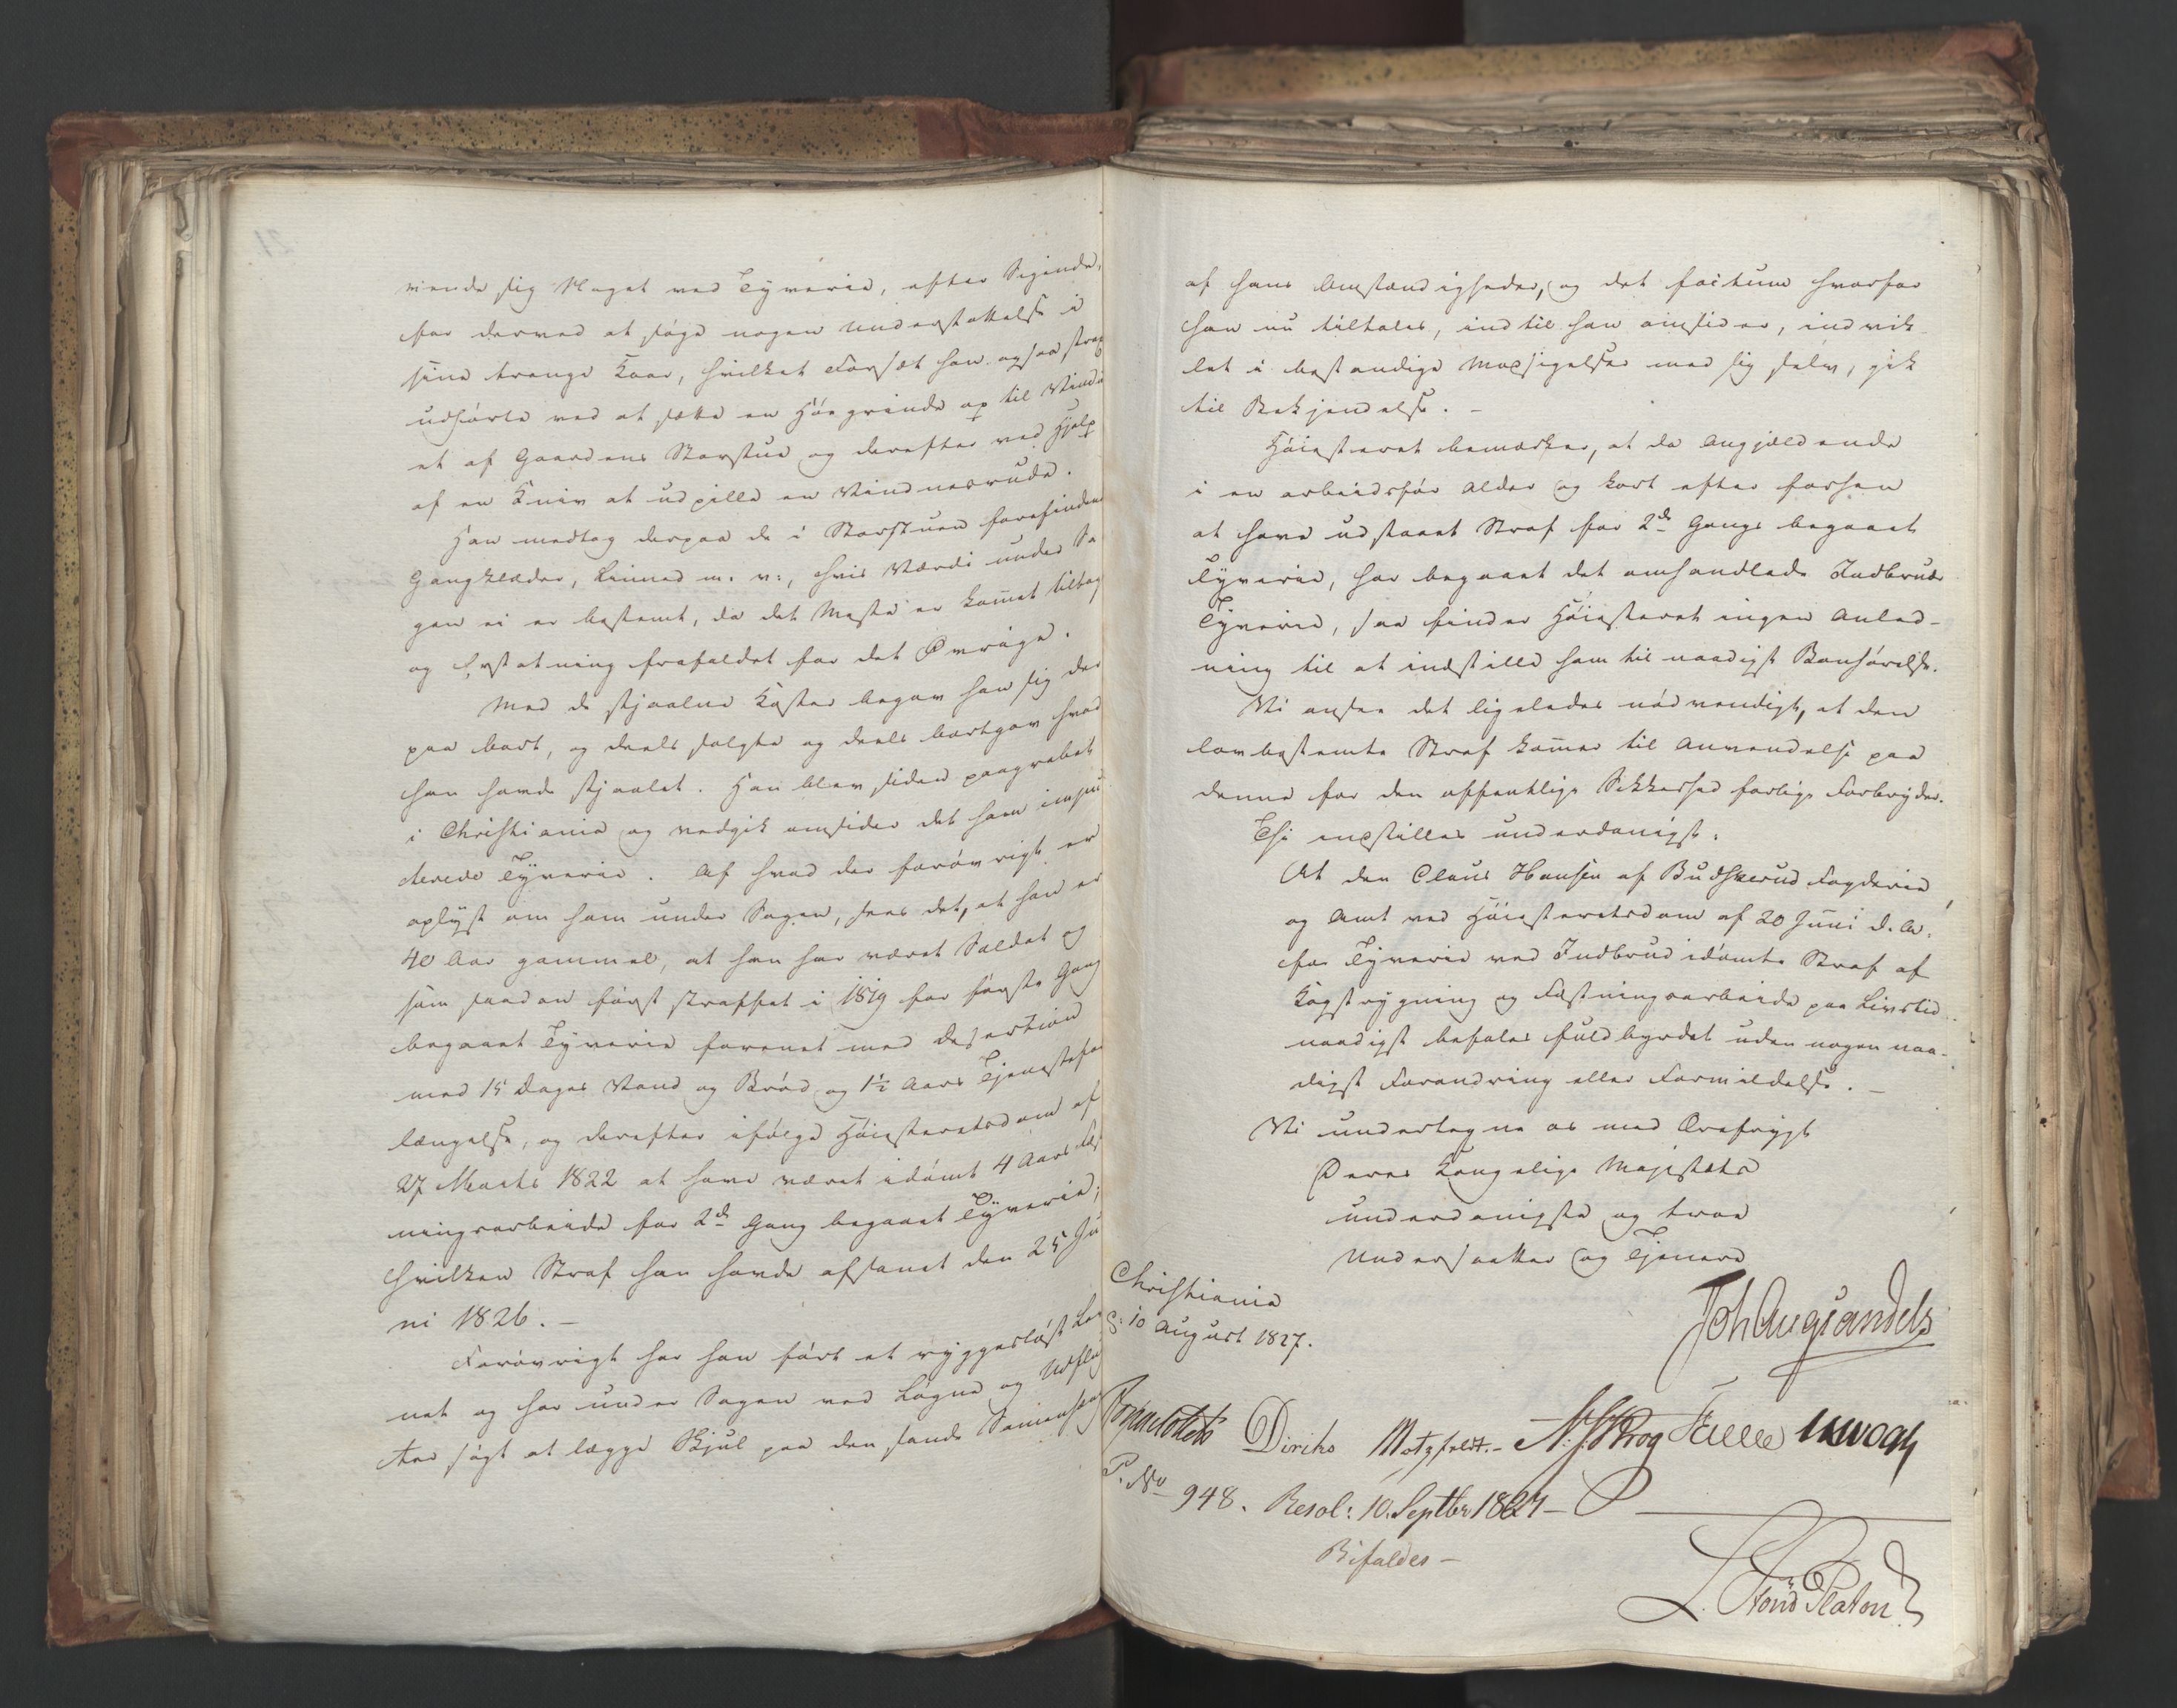 vende sig Noget ved Tyverie, efter Sigende,
for derved at søge nogen Understøttelse i
sine trange Kaar, hvilket Forsæt han ogsaa strax
udførte ved at sætte en Høegrinde op til Vindu
et af Gaardens Storstue og derefter ved Hjelp
af en Kniv at udpille en Vinduesrude.
Han medtog derpaa de i Storstuen forefindende
Gangklæder, Linned m. v:, hvis Værdi under Sa
gen ei er bestemt, da det Meste er kom̅et tilbage
og Erstatning frafaldet for det Øvrige.
Med de stjaalne Koster begav han sig der
paa bort, og deels solgte og deels bortgav hvad
han havde stjaalet. Han blev siden paagreben
i Christiania og vedgik omsider det ham impu
terede Tyverie. Af hvad der forøvrigt er
oplyst om ham under Sagen, sees det, at han er
40 Aar gammel, at han har været Soldat og
som saadan først straffet i 1819 for første Gang
begaaet Tyverie forenet med Desertion
med 15 Dages Vand og Brød og 1½ Aars Tjenestefor
længelse, og derefter ifølge Høiesteretsdom af
27 Marts 1822 at have været idømt 4 Aars Fæst
ningsarbeide for 2de Gang begaaet Tyverie,
hvilken Straf han havde afsonet den 25 Ju
ni 1826. –
Forøvrigt har han ført et ryggesløst Lev
net og har under Sagen ved Løgne og Udflug
ter søgt at lægge Skjul paa den sande Sammenhæng
af hans Omstændigheder, og det factum hvorfor
han nu tiltales, indtil han omsider, indvik
let i bestandige Modsigelser med sig selv, gik
til Bekjendelse. –
Høiesteret bemærker, at da Angjældende
i en arbeidsfør Alder og kort efter forhen
at have udstaaet Straf for 2de Gangs begaaet
Tyverie, har begaaet det omhandlede Indbruds
Tyverie, saa finder Høiesteret ingen Anled-
ning til at indstille ham til naadigst Benhørelse.
Vi ansee det ligeledes nødvendigt, at den
lovbestemte Straf kom̅er til Anvendelse paa
denne for den offentlige Sikkerhed farlige Forbryder.
Thi indstilles underdanigst:
At den Claus Hansen af Budskerud Fogderie
og Amt ved Høiesteretsdom af 20 Juni d. A.
for Tyverie ved Indbrud idømte Straf af
Kagstrygning og Fæstningsarbeide paa Livstid
naadigst befales fuldbyrdet uden nogen naa-
digst Forandring eller Formildelse. –
Vi undertegne os med Ærefrygt
Deres Kongelige Majestæts
underdanigste og troe
Undersaatter og Tjenere
Christiania
d: 10 August 1827.
Joh Aug Sandels
Diriks Motzfeldt. – Krog
P. No 948. Resol: 10. Septbr 1827 –
Bifaldes –
L. Stoud Platou